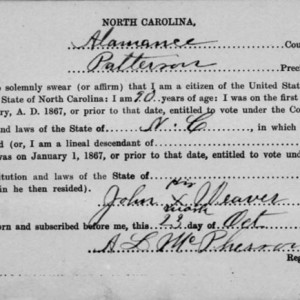 NORTH CAROLINA,
Alamance Cou
Patterson Prec
o solemnly swear (or affirm) that I am a citizen of the United State
State of North Carolina: I am 20 years of age: I was on the first
ry, A. D. 1867, or prior to that date, entitled to vote under the Co
nd laws of the State of N. C, in which
d (or, I am a lineal descendant of
was on January 1, 1867, or prior to that date, entitled to vote und
titution and laws of the State of
in he then resided).
his
John X Weaver
mark
rn and subscribed before me, this 23 day of Oct.
A L McPherson
Reg